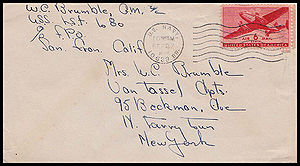 W.C. Brumble, Q.M. 2/c
USS. LST. 680
℅ F.P.O.
San. Fran. Calif.
U.S. NAVY
AIR 6 MAIL
UNITED STATES OF AMERICA
Mrs. W.C. Brumble
Van Tassel Apts.
95 Beekman. Ave
N. Tarry Town
New York